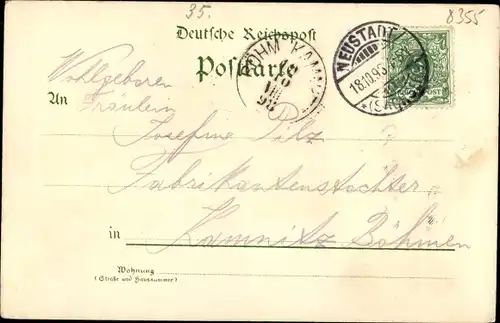 35.
8355
Deutsche Reichspost
Postkarte
BÖHM KAMN
NEUSTADT
18.10.98
(SACHSEN)
Wohlgeboren
An Fräulein
Josefine Pilz
Fabrikantenstochter
in Kamnitz Böhmen
Wohnung
(Straße und Hausnummer)